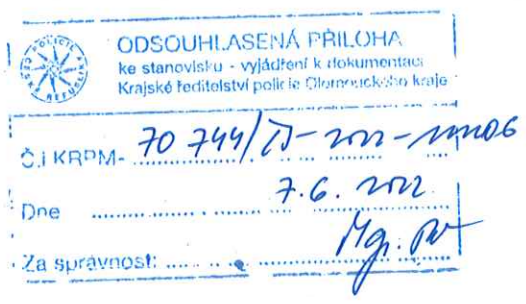 POLICIE
ODSOUHLASENÁ PŘÍLOHA
ke stanovisku - vyjádření k dokumentaci
Krajské ředitelství policie Olomouckého kraje
Č.j KRPM- 70 744/
Dne 7.6. 2022
Za správnost: Mgr.